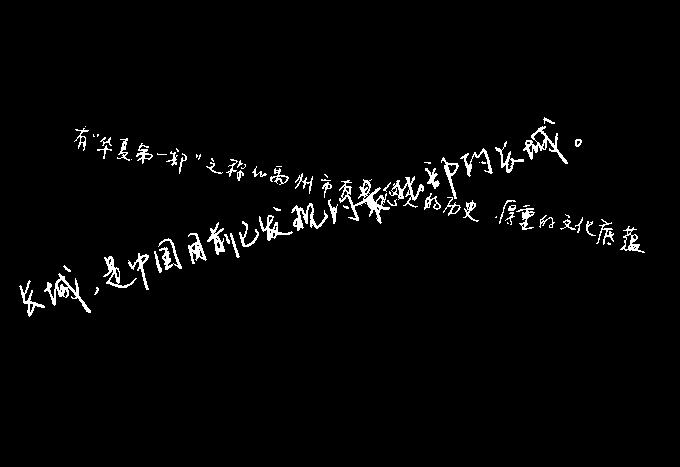 有"华夏第一都"之称的禹州市有着悠久的历史,厚重的文化底蕴
长城,是中国目前已发现的最北部的长城。